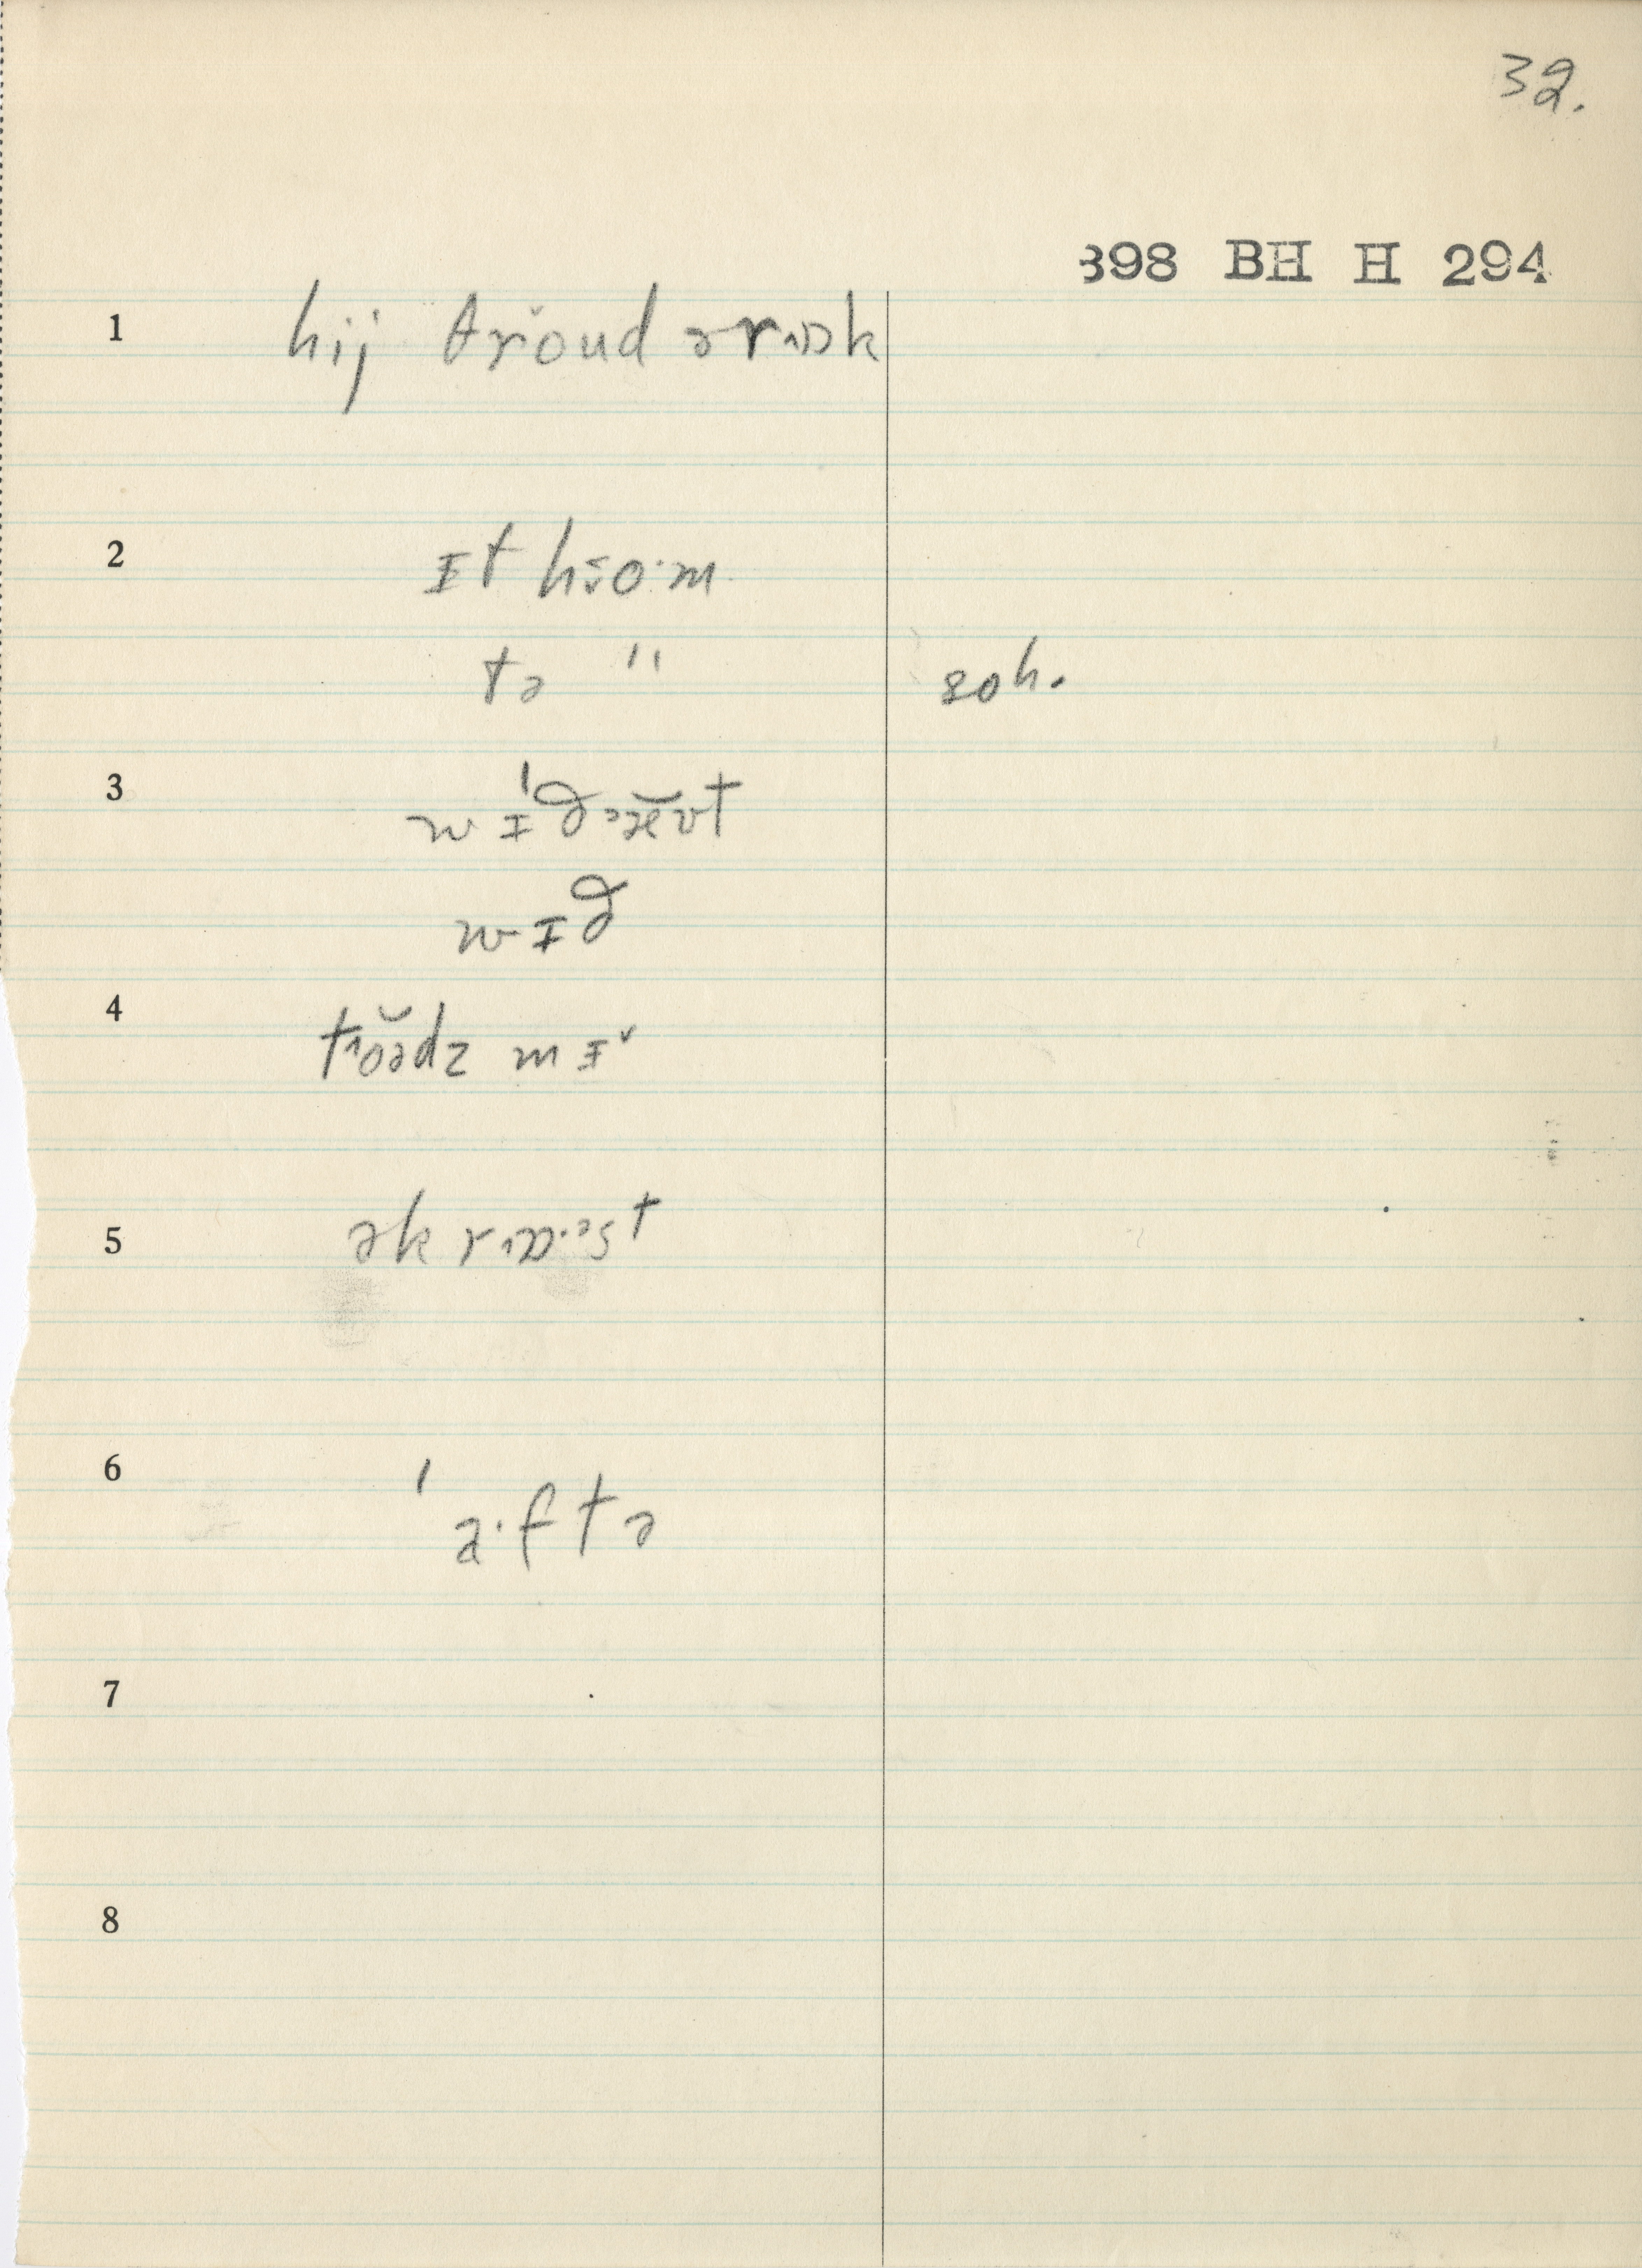 32.
898 BH H 294
1 hij θrŏud ə rɒk
2 ɪt hɜo·m
tə " soh.
3 wɪ́ðəæ̆ʊt
wɪð
4 tŏədz mɪ
5 əkrɒ·əst
6 ' a·ftə
7
8